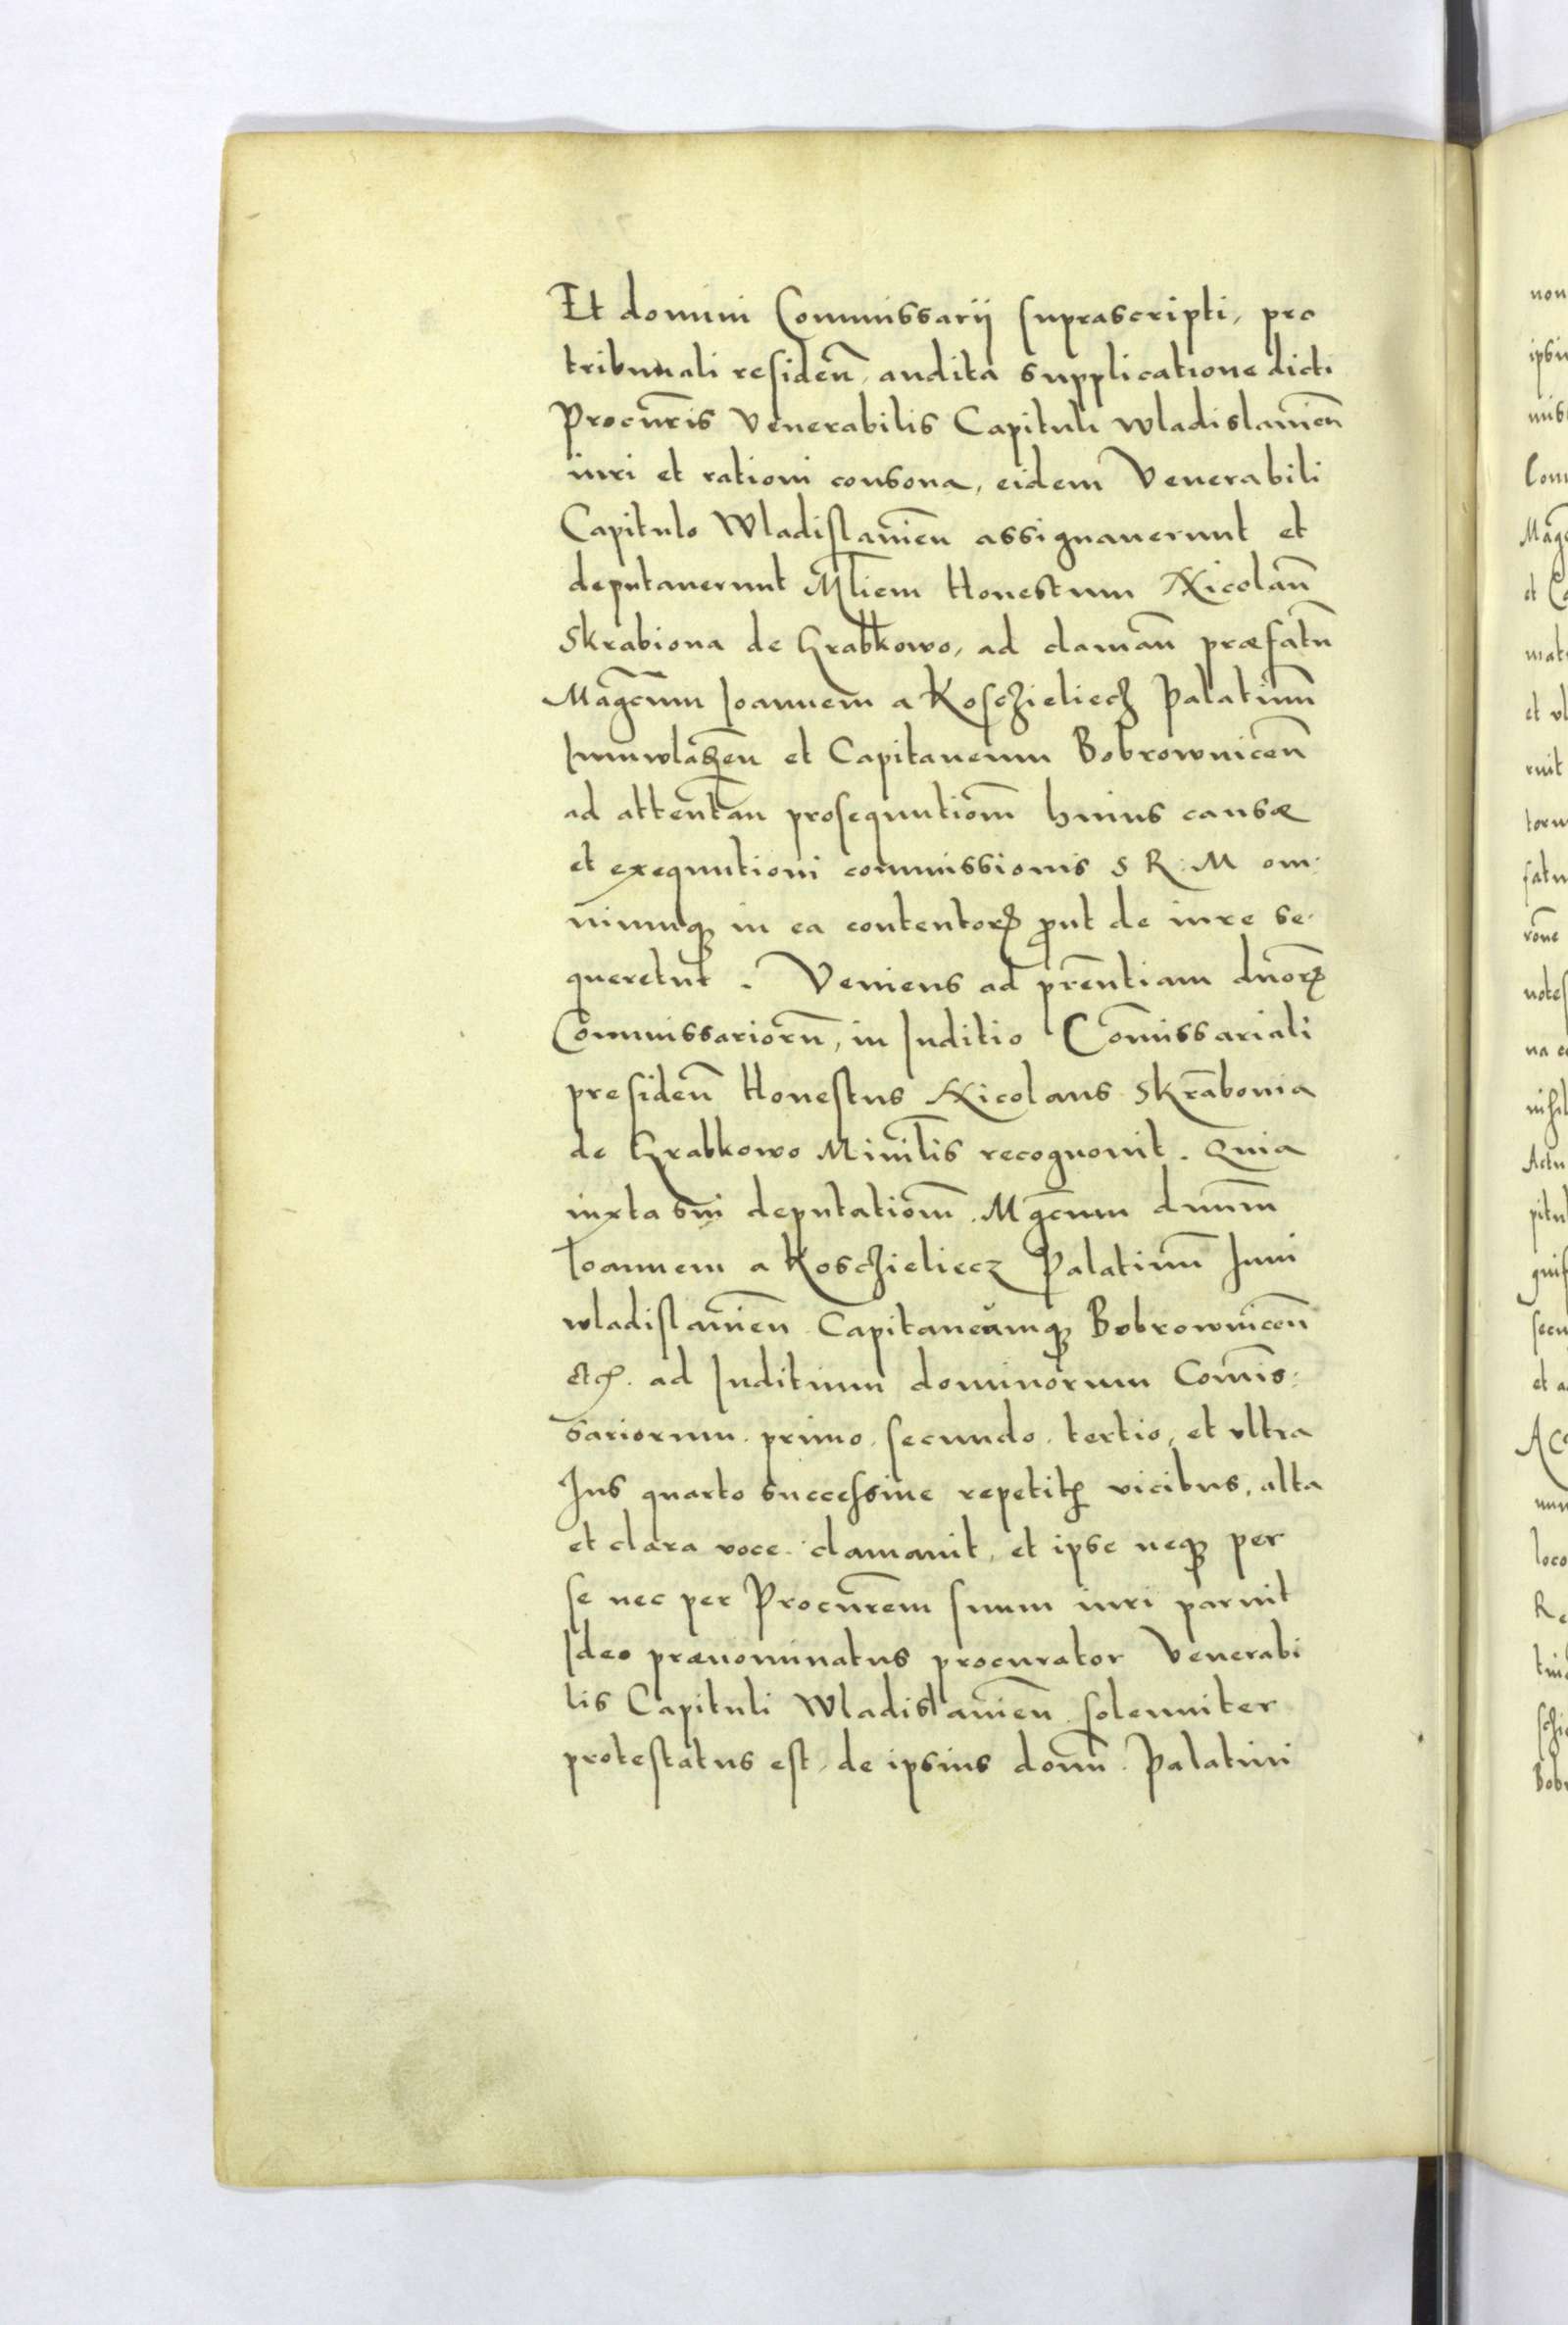 Et domini Commissarij suprascripti, pro
tribunali residen̄, audita supplicatione dicti
Procur̄is Venerabilis Capituli Wladislauien̄
iuri et rationi consona, eidem Venerabili
Capitulo Wladislauien̄ assignauerunt et
deputauerunt M̄l̄iem Honestum Nicolaū
Skrabiona de Grabkowo, ad claman̄ præfatū
Mag̅cum Ioannem a Koschieliecz Palatinū
et Capitaneum Bobrownicen̄
ad attentan̄ prosequutiom̄ huius causæ
et exequutioni commissionis S R. M om:
niumq; in ea contentorꝝ ꝓut de iure se:
queretur. Veniens ad prēntiam dn̄orꝝ
Commissariorū, in Iuditio Com̄issariali
presiden̄ Honestus Nicolaus Skrabonia
de Grabkowo Minil̄is recognouit. Quia
iuxta sui deputatiom̄. Mg̅cum dnum̄
Ioannem a Koschieliecz Palatinū Iuni
wladislauien̄. Capitaneūmq; Bobrownicen̄
ad Iuditium dominorum Com̄is:
sariorum. primo. secundo. tertio, et vltra
Ius quarto successiue repetitꝭ vicibus, alta
et clara voce. clamauit, et ipse neq; per
se nec per Procur̄em suum iuri paruit
Ideo prænominatus procurator Venerabi
lis Capituli Wladislauien̄. solenniter
protestatus est, de ipsius domī. Palatini